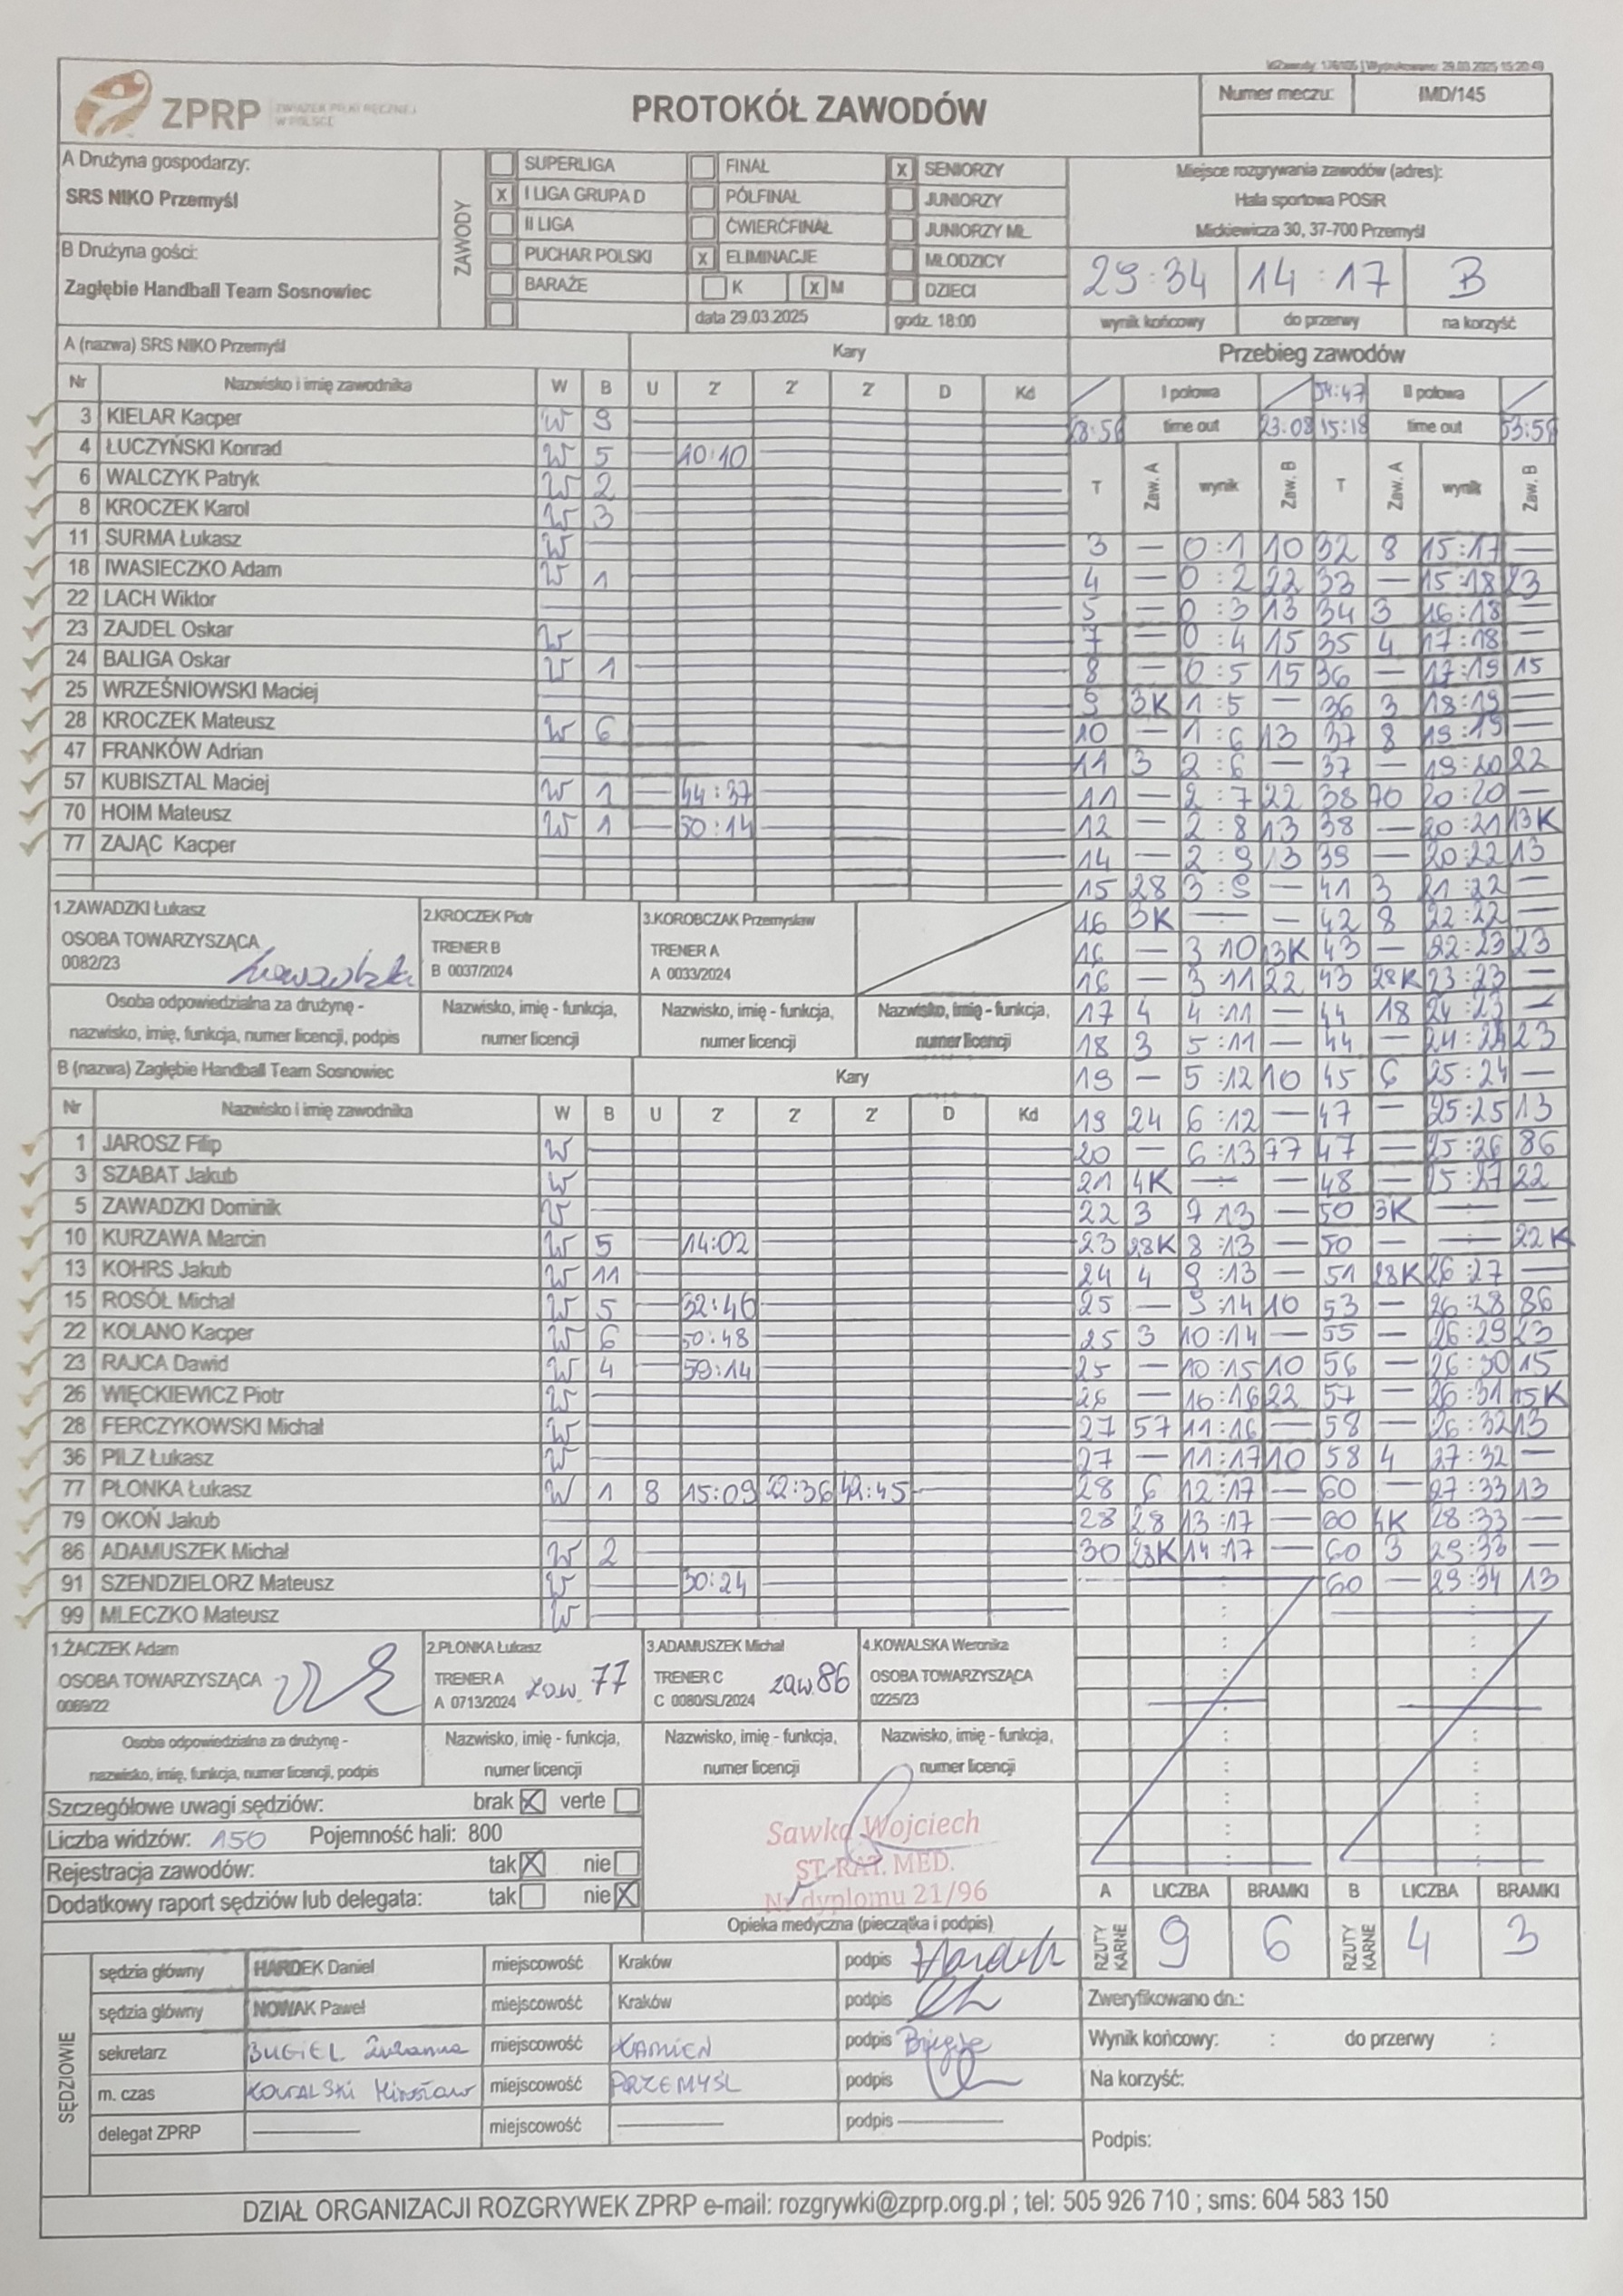 IdZawody: 176105 | Wydrukowano: 29.03.2025 15:20:49
ZPRP ZWIĄZEK PIŁKI RĘCZNEJ W POLSCE
PROTOKÓŁ ZAWODÓW
Numer meczu: IMD/145
A Drużyna gospodarzy:
SRS NIKO Przemyśl
B Drużyna gości:
Zagłębie Handball Team Sosnowiec
ZAWODY
SUPERLIGA
X I LIGA GRUPA D
II LIGA
PUCHAR POLSKI
BARAŻE
FINAŁ
PÓŁFINAŁ
ĆWIERĆFINAŁ
X ELIMINACJE
K X M
data 29.03.2025
X SENIORZY
JUNIORZY
JUNIORZY MŁ.
MŁODZICY
DZIECI
godz. 18:00
Miejsce rozgrywania zawodów (adres):
Hala sportowa POSiR
Mickiewicza 30, 37-700 Przemyśl
29:34 14:17 B
wynik końcowy do przerwy na korzyść
A (nazwa) SRS NIKO Przemyśl Kary
Nr Nazwisko i imię zawodnika W B U 2' 2' 2' D Kd
3 KIELAR Kacper W 9
4 ŁUCZYŃSKI Konrad W 5 10:10
6 WALCZYK Patryk W 2
8 KROCZEK Karol W 3
11 SURMA Łukasz W
18 IWASIECZKO Adam W 1
22 LACH Wiktor
23 ZAJDEL Oskar W
24 BALIGA Oskar W 1
25 WRZEŚNIOWSKI Maciej
28 KROCZEK Mateusz W 6
47 FRANKÓW Adrian
57 KUBISZTAL Maciej W 1 44:37
70 HOIM Mateusz W 1 50:14
77 ZAJĄC Kacper
1.ZAWADZKI Łukasz
OSOBA TOWARZYSZĄCA
0082/23
2.KROCZEK Piotr
TRENER B
B 0037/2024
3.KOROBCZAK Przemysław
TRENER A
A 0033/2024
Osoba odpowiedzialna za drużynę -
nazwisko, imię, funkcja, numer licencji, podpis
Nazwisko, imię - funkcja,
numer licencji
Nazwisko, imię - funkcja,
numer licencji
Nazwisko, imię - funkcja,
numer licencji
B (nazwa) Zagłębie Handball Team Sosnowiec Kary
Nr Nazwisko i imię zawodnika W B U 2' 2' 2' D Kd
1 JAROSZ Filip W
3 SZABAT Jakub W
5 ZAWADZKI Dominik W
10 KURZAWA Marcin W 5 14:02
13 KOHRS Jakub W 11
15 ROSÓŁ Michał W 5 32:46
22 KOLANO Kacper W 6 50:48
23 RAJCA Dawid W 4 59:14
26 WIĘCKIEWICZ Piotr W
28 FERCZYKOWSKI Michał W
36 PILZ Łukasz W
77 PŁONKA Łukasz W 1 8 15:09 22:36 42:45
79 OKOŃ Jakub
86 ADAMUSZEK Michał W 2
91 SZENDZIELORZ Mateusz W 30:24
99 MLECZKO Mateusz W
1.ŻACZEK Adam
OSOBA TOWARZYSZĄCA
0069/22
2.PŁONKA Łukasz
TRENER A
A 0713/2024 zaw. 77
3.ADAMUSZEK Michał
TRENER C
C 0080/SL/2024 zaw 86
4.KOWALSKA Weronika
OSOBA TOWARZYSZĄCA
0225/23
Osoba odpowiedzialna za drużynę -
nazwisko, imię, funkcja, numer licencji, podpis
Nazwisko, imię - funkcja,
numer licencji
Nazwisko, imię - funkcja,
numer licencji
Nazwisko, imię - funkcja,
numer licencji
Przebieg zawodów
I połowa 54:47 II połowa
time out 23:08 15:18 time out
T Zaw. A wynik Zaw. B T Zaw. A wynik Zaw. B
3 — 0:1 10 32 8 15:17 —
4 — 0:2 22 33 — 15:18 23
5 — 0:3 13 34 3 16:18 —
7 — 0:4 15 35 4 17:18 —
8 — 0:5 15 36 — 17:19 15
9 3K 1:5 — 36 3 18:19 —
10 — 1:6 13 37 8 19:19 —
11 3 2:6 — 37 — 19:20 22
11 — 2:7 22 38 70 20:20 —
12 — 2:8 13 38 — 20:21 13K
14 — 2:9 13 39 — 20:22 13
15 28 3:9 — 41 3 21:22 —
16 3K — — 42 8 22:22 —
16 — 3 10 13K 43 — 22:23 23
16 — 3:11 22 43 28K 23:23 —
17 4 4:11 — 44 18 24:23 —
18 3 5:11 — 44 — 24:24 23
19 — 5:12 10 45 6 25:24 —
19 24 6:12 — 47 — 25:25 13
20 — 6:13 77 47 — 25:26 86
21 4K — — 48 — 25:27 22
22 3 7 13 — 50 3K — —
23 28K 8:13 — 50 — — 22K
24 4 9:13 — 51 28K 26:27 —
25 — 9:14 10 53 — 26:28 86
25 3 10:14 — 55 — 26:29 23
25 — 10:15 10 56 — 26:30 15
26 — 10:16 22 57 — 26:31 15K
27 57 11:16 — 58 — 26:32 13
27 — 11:17 10 58 4 27:32 —
28 6 12:17 — 60 — 27:33 13
28 28 13:17 — 60 4K 28:33 —
30 28K 14:17 — 60 3 29:33 —
60 — 29:34 13
Szczegółowe uwagi sędziów: brak X verte
Liczba widzów: 150 Pojemność hali: 800
Rejestracja zawodów: tak X nie
Dodatkowy raport sędziów lub delegata: tak nie X
Sawka Wojciech
ST. RAT. MED.
Nr dyplomu 21/96
Opieka medyczna (pieczątka i podpis)
A LICZBA BRAMKI B LICZBA BRAMKI
RZUTY KARNE 9 6 RZUTY KARNE 4 3
SĘDZIOWIE
sędzia główny HARDEK Daniel miejscowość Kraków podpis Hardek
sędzia główny NOWAK Paweł miejscowość Kraków podpis
sekretarz BUGIEL Zuzanna miejscowość KAMIEŃ podpis
m. czas KOWALSKI Mirosław miejscowość PRZEMYŚL podpis
delegat ZPRP — miejscowość — podpis —
Zweryfikowano dn.:
Wynik końcowy: : do przerwy :
Na korzyść:
Podpis:
DZIAŁ ORGANIZACJI ROZGRYWEK ZPRP e-mail: rozgrywki@zprp.org.pl ; tel: 505 926 710 ; sms: 604 583 150